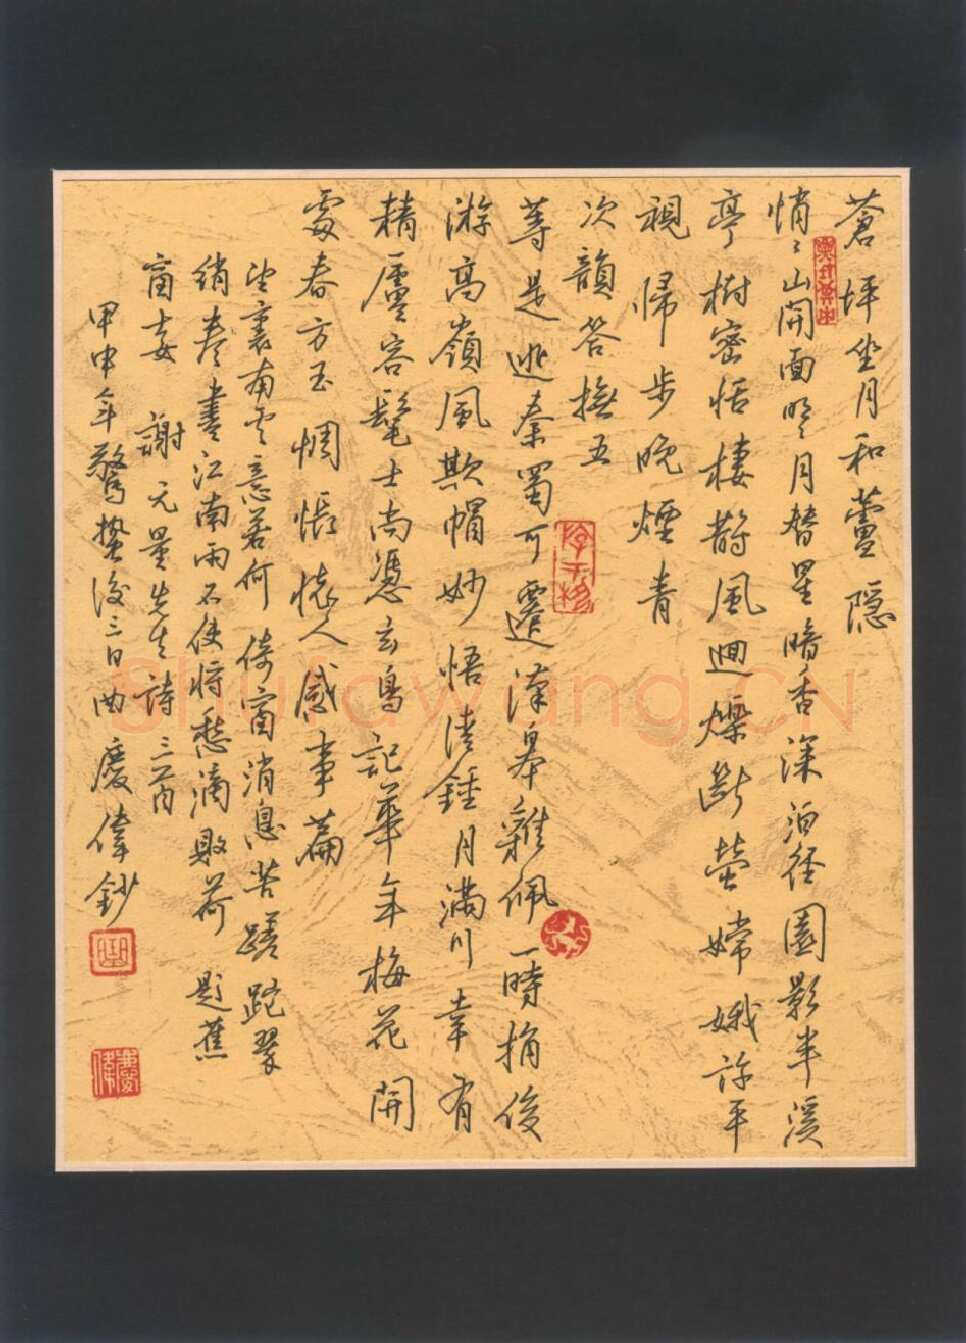 蒼坪坐月和蘆隱
悄々山開面明月替星暗香深泊徑園影半溪
亭樹密恬棲鵲風迴爍斷螢嫦娥許平
視歸步晚煙青
次韻答撫五
等是逃秦蜀可遷漢皋雜佩一時捐俊
游高嶺風欺帽妙悟清鍾月滿川幸有
精廬容髦士尚憑玄鳥記華年梅花開
處春方至惆悵懷人感事篇
望裏南雲意若何倚窗消息苦蹉跎翠
綃卷盡江南雨不使將愁滴敗荷題蕉
窗 謝元量先生詩三首
甲申年驚蟄後三日曲慶偉鈔
Shufawang.CN